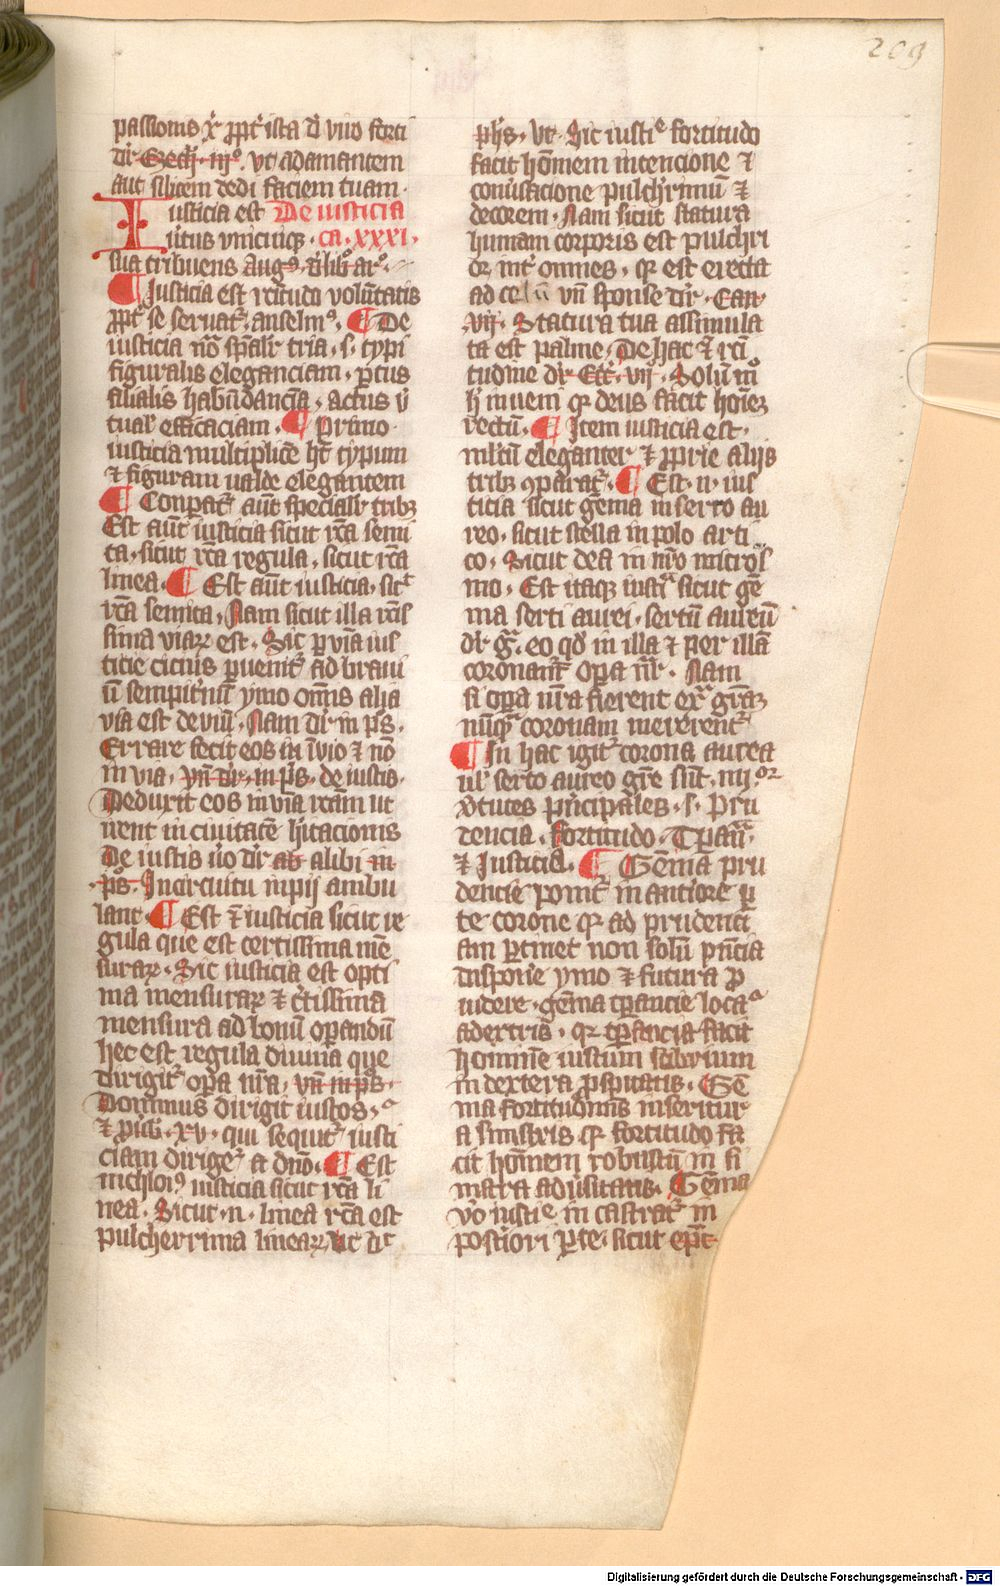 209
passionis xp̄i ꝓpt̄ ista dr̄ viro forti
dr̄ Ezech̄ iij° vt adamantem
aut silicem dedi faciem tuam·
Iusticia est De iusticia
ū̄tus vnicuiqꝫ · ca · xxxi ·
sua tribuens Aug⁹ d̄ lib° ar°·
¶ Justicia est rc̄itudo volūtatis
ꝓpt̄ se seruat᷑ · anselm⁹ · ¶ De
iusticia nō sp̄alr̄ tria · s · typi
figuralis eleganciam · ꝑtus
filialis habūdanciā · actus v̄
tual᷑ efficaciam · ¶ Primo
iusticia multiplicē hꝫ typum
⁊ figuram ualde elegantem
¶ Conpat᷑ aūt specialr̄ tribꝫ
Est aūt iusticia sicut rc̄a semi
ta · sicut rc̄a regula · sicut rc̄a
linea · ¶ Est aūt iusticia · sic̄
rc̄a semita · Nam sicut illa rc̄is
sima viaꝝ est · Sic ꝑ viā ius
ticie cicius ꝑuenit᷑ ad braui
ū sempit̄nū ymo om̄is alia
via est deuiū · Nam dr̄ in p̄s ·
Errare fecit eos in īuio ⁊ nō
in via · vn̄ dr̄ · in p̄s · de iustis ·
Deduxit eos in via rc̄am ut
irent in ciuitatē h̄itacionis
De iustis ū̄o dr̄ ab alibi in
· p̄s · In circuitu inpij ambu
lant · ¶ Est ē iusticia sicut re
gula que est certissima mē
suraꝝ · Sic iusticia est opti
ma mensuraꝝ ⁊ c̄tissima
mensura ad bonū opandū
hec est regula diuina que
dirigit᷑ opa nr̄a · vn̄ in p̄s ·
Dominus dirigit iustos · ·
⁊ ꝓūb̄ · xv · qui sequit᷑ iusti
ciam diriget᷑ a dn̄o · ¶ Est
nichlo⁹ iusticia sicut rc̄a li
nea · Sicut · n · linea rc̄a est
pulcherrima lineaꝝ ut dr̄
ph̄s · vt · Sic iusti° fortitudo
facit hōinem intencione ⁊
conūsacione pulch̄rimū ⁊
decorem · Nam sicut statura
humani corporis est pulchri
or int̄ omnes · qꝛ est erecta
ad celū vn̄ sponse dr̄ · Can̄
· vij · Statura tua assimula
ta est palme · De hac ⁊ rc̄i
tudine dr̄ Ecc̄ · vij · Solū m°
h̄ inueni qꝛ deus facit hoīeꝫ
rectū · ¶ Item iusticia est ·
ml̄tū eleganter ⁊ ꝓprie alijs
tribꝫ ꝯparat᷑ · ¶ Est · n · ius
ticia sicut gēma in serto au
reo · sicut stella in polo arti
co · Sicut dea in nr̄o microṡ
mo · Est itaqꝫ iustī sicut gē
ma serti aurei · sertū aureū
dr̄ gr̄a · eo qd̄ in illa ⁊ per illā
coronant᷑ opa nr̄ · Nam
si opa nr̄a fierent ex̄ grāꝫ
nūqᷓ coronam mererent᷑
¶ In hac igit᷑ corona aurea
ul᷑ serto aureo gr̄e sūt · iiij · or
v̄tutes pn̄cipales · s · Pru
dencia · fortitudo · Tꝑanc̄ ·
⁊ Justicia · ¶ Gēma pru
dencie ponit᷑ in anteriore ꝑ
te corone qꝛ ad prudenci
am ꝑtinet non solū pn̄cia
disponē ymo ⁊ futura ꝓ
uidere · gēma tꝑancie locat᷑
a dextris · qꝛ tꝑancia facit
hominē iustum sobrium
in dextera ꝓspitatis · Gē
ma fortitudinis inseritur
a sinistris qꝛ fortitudo fa
cit hōinem robustū in si
nistra adūsitatis · Gēma
v̄o iusti° in castrat᷑ in
post̄iori ꝑte · sicut